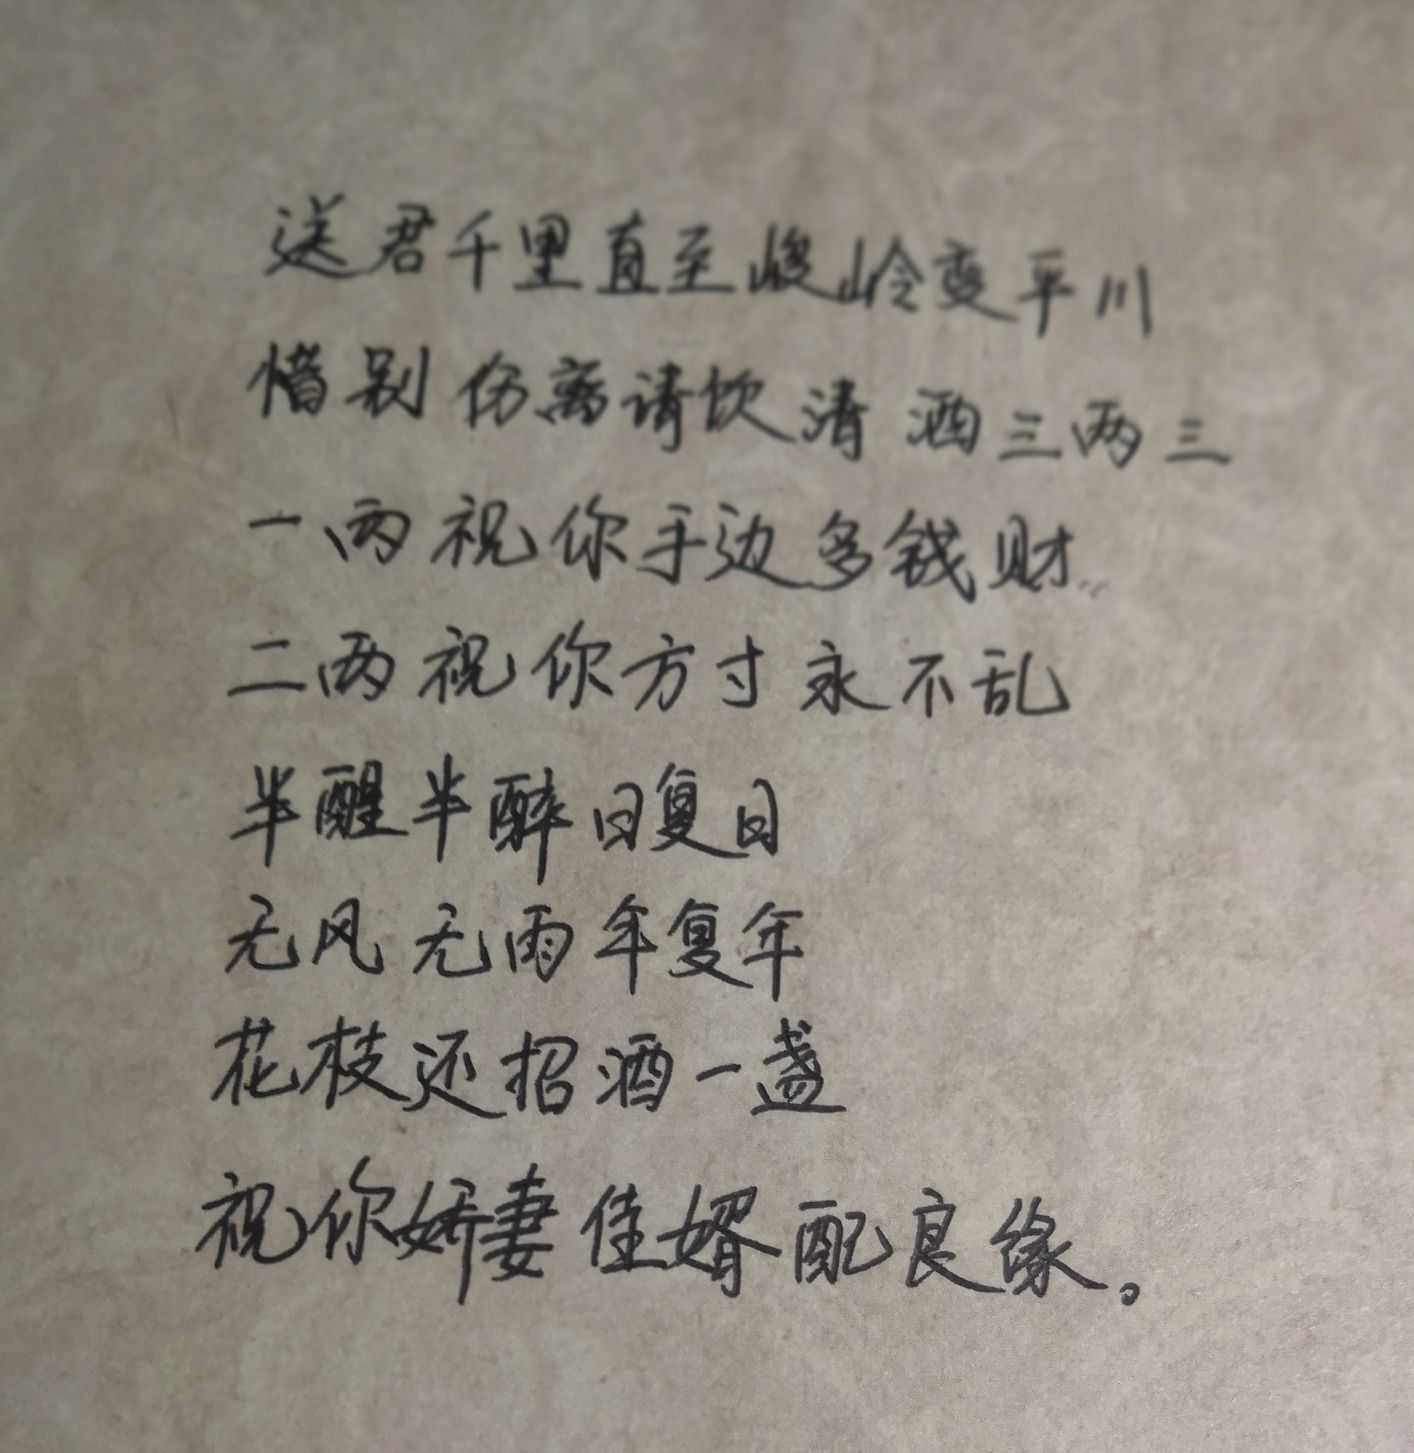 送君千里直至峻岭变平川
惜别伤离请饮清酒三两三
一两祝你手边多钱财
二两祝你方寸永不乱
半醒半醉日复日
无风无雨年复年
花枝还招酒一盏
祝你娇妻佳婿配良缘。